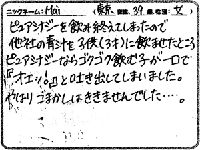 ニックネーム:Mai (東京 都道府県 39歳 性別:女)
ピュアシナジーを飲み終えてしまったので
他社の青汁を子供(3才)に飲ませたところ
ピュアシナジーならゴクゴク飲む子が一口で
『オエッ!』と吐き出してしまいました。
やはりごまかしはききませんでした…。